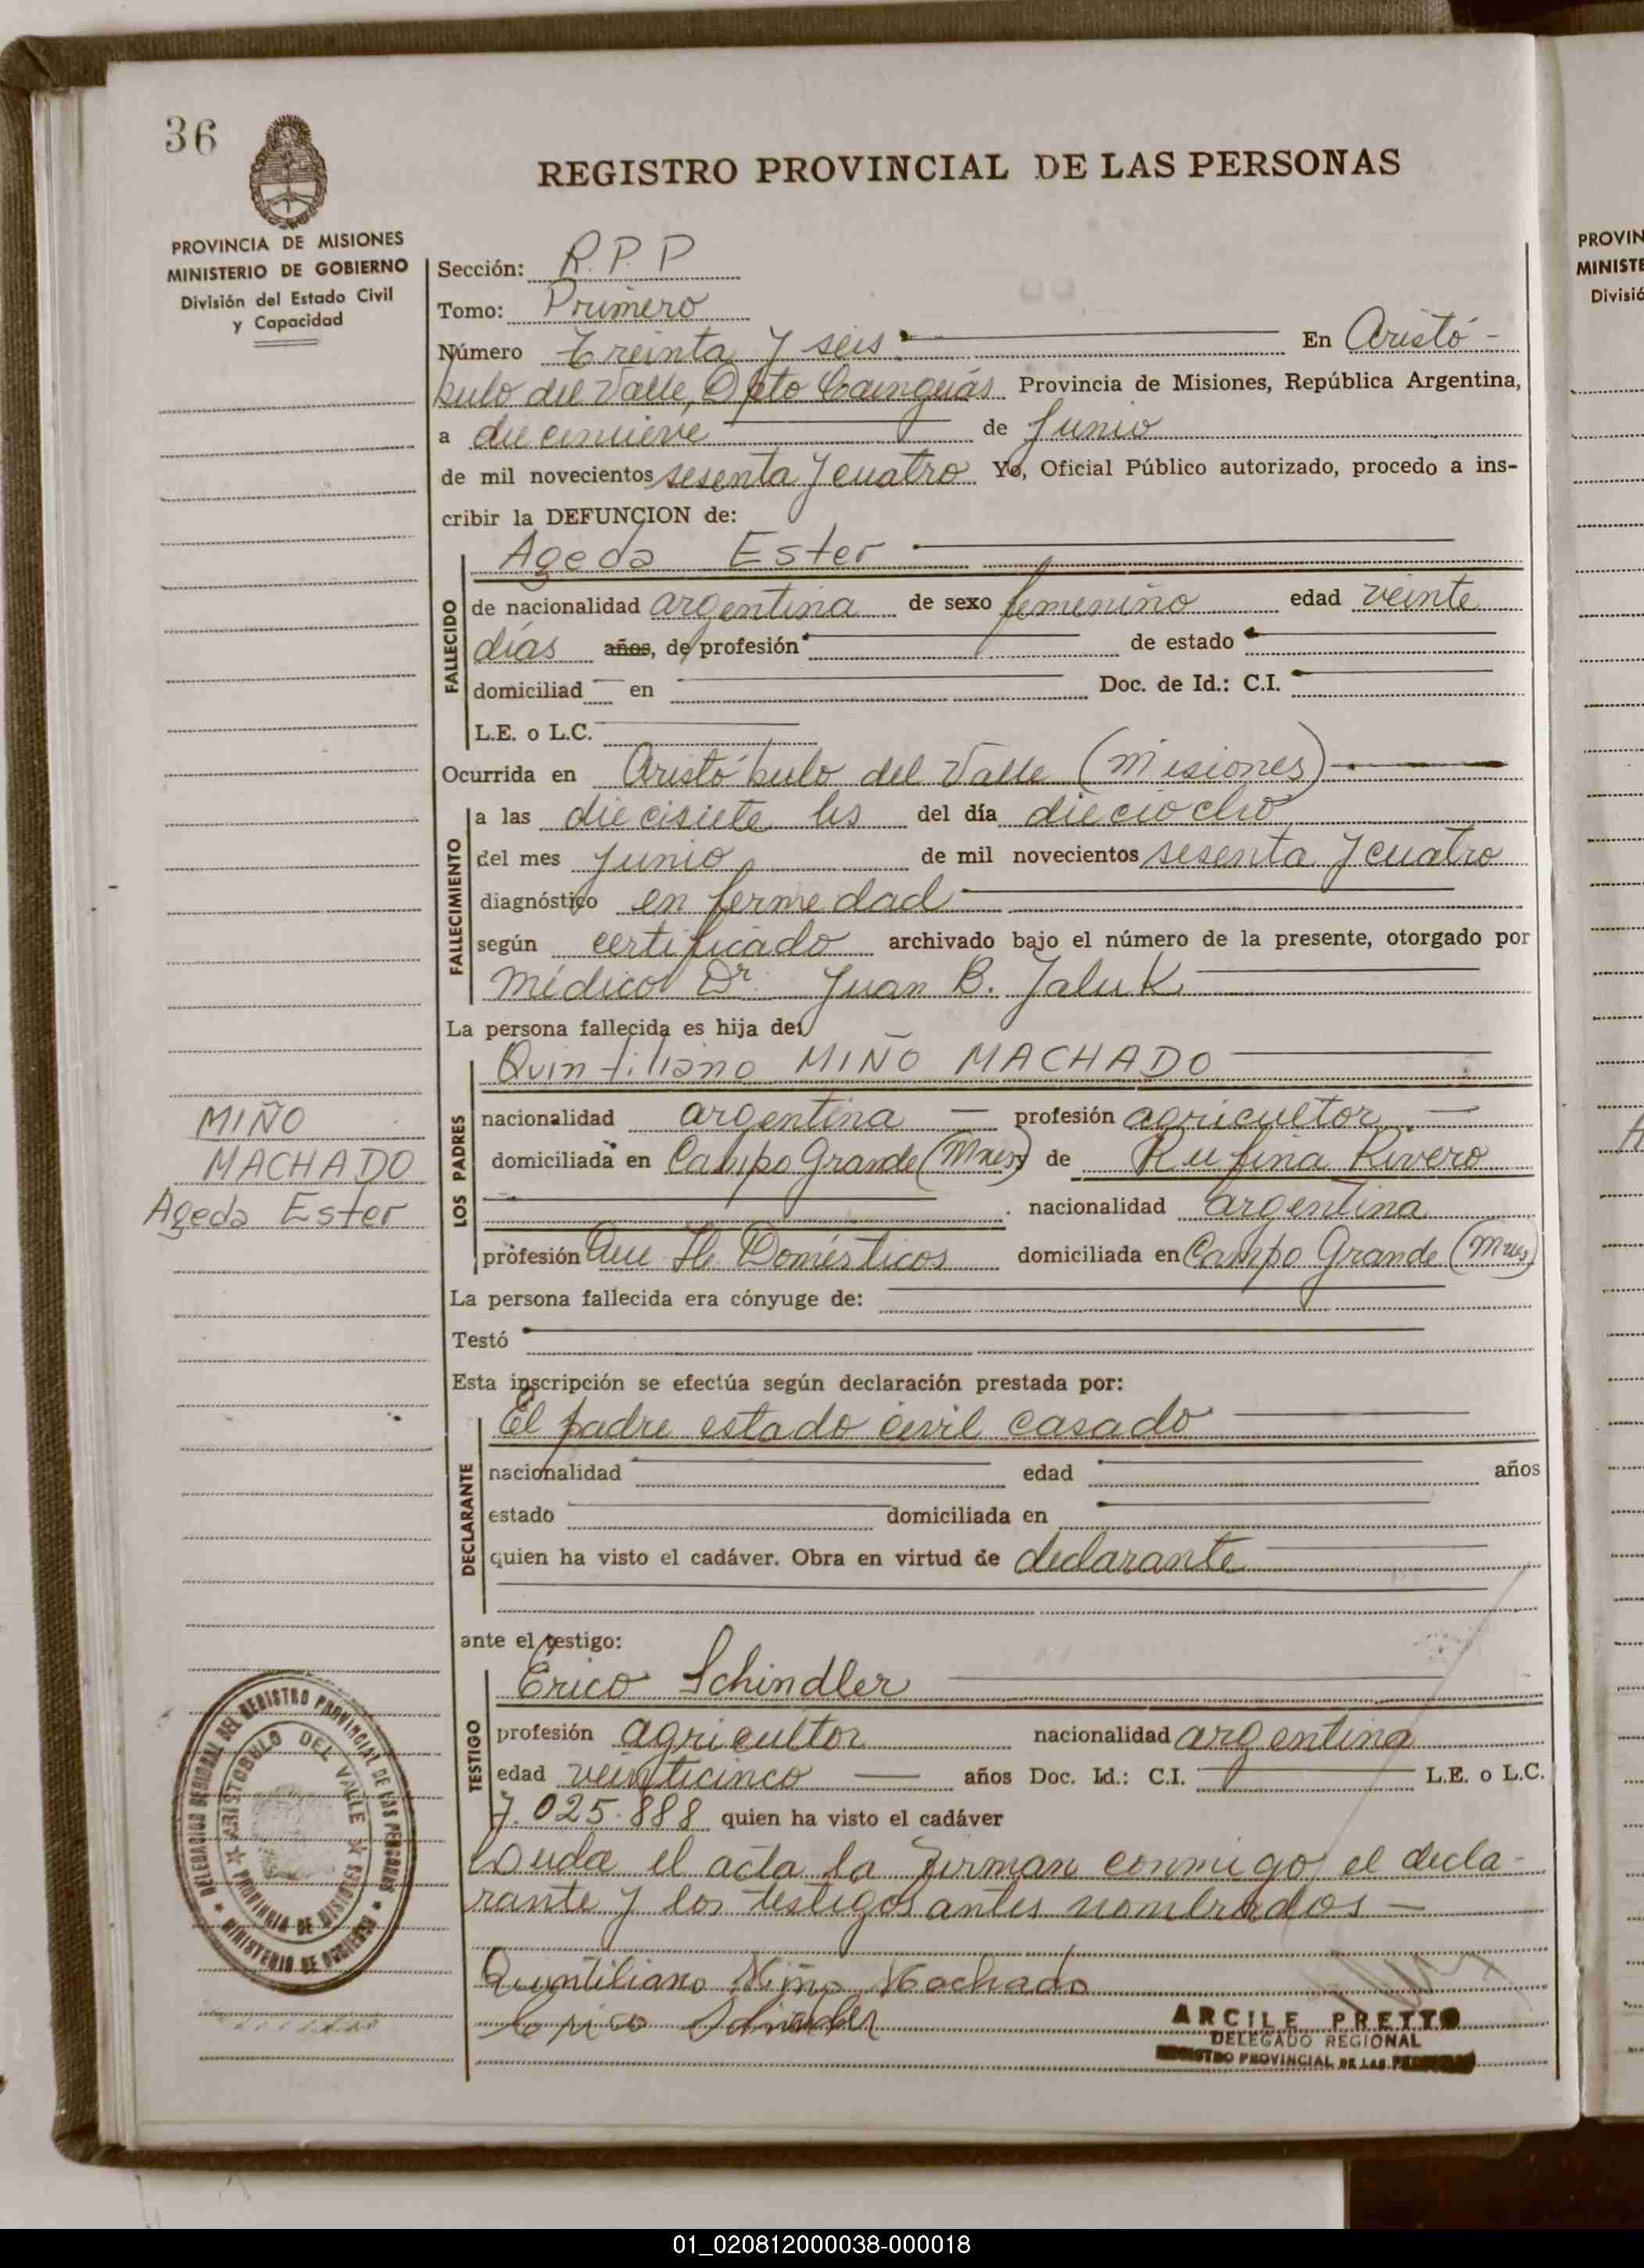 36
REGISTRO PROVINCIAL DE LAS PERSONAS
PROVINCIA DE MISIONES
MINISTERIO DE GOBIERNO
División del Estado Civil
y Capacidad
Sección: R.P.P
Tomo: Primero
Número Treinta y seis. En Aristó-
bulo del Valle, Dpto Cainguás Provincia de Misiones, República Argentina,
a diecinueve de Junio
de mil novecientos sesenta y cuatro Yo, Oficial Público autorizado, procedo a ins-
cribir la DEFUNCION de:
Ageda Ester
FALLECIDO
de nacionalidad argentina de sexo femenino edad veinte
días años, de profesión de estado
domiciliad en Doc. de Id.: C.I.
L.E. o L.C.
Ocurrida en Aristóbulo del Valle (Misiones)
FALLECIMIENTO
a las diecisiete hs del día dieciocho
del mes Junio de mil novecientos sesenta y cuatro
diagnóstico enfermedad
según certificado archivado bajo el número de la presente, otorgado por
Médico Dr. Juan B. Jaluk
La persona fallecida es hija de:
Quintiliano MIÑO MACHADO
LOS PADRES
nacionalidad argentina profesión agricultor
domiciliada en Campo Grande (Mnes) de Rufina Rivero
nacionalidad argentina
profesión Que Hc. Domésticos domiciliada en Campo Grande (Mnes)
MIÑO
MACHADO
Ageda Ester
La persona fallecida era cónyuge de:
Testó
Esta inscripción se efectúa según declaración prestada por:
El padre estado civil casado
DECLARANTE
nacionalidad edad años
estado domiciliada en
quien ha visto el cadáver. Obra en virtud de declarante
ante el testigo:
Erico Schindler
TESTIGO
profesión agricultor nacionalidad argentina
edad veinticinco años Doc. Id.: C.I. L.E. o L.C.
7.025.888 quien ha visto el cadáver
Leída el acta la firman conmigo, el decla-
rante y los testigos antes nombrados
Quintiliano Miño Machado
Erico Schindler
ARCILE PRETTO
DELEGADO REGIONAL
REGISTRO PROVINCIAL DE LAS PERSONAS
DELEGACION REGIONAL DEL REGISTRO PROVINCIAL DE LAS PERSONAS
MINISTERIO DE GOBIERNO
ARISTOBULO DEL VALLE
PROVINCIA DE MISIONES
PROVIN
MINISTE
Divisió
01_020812000038-000018